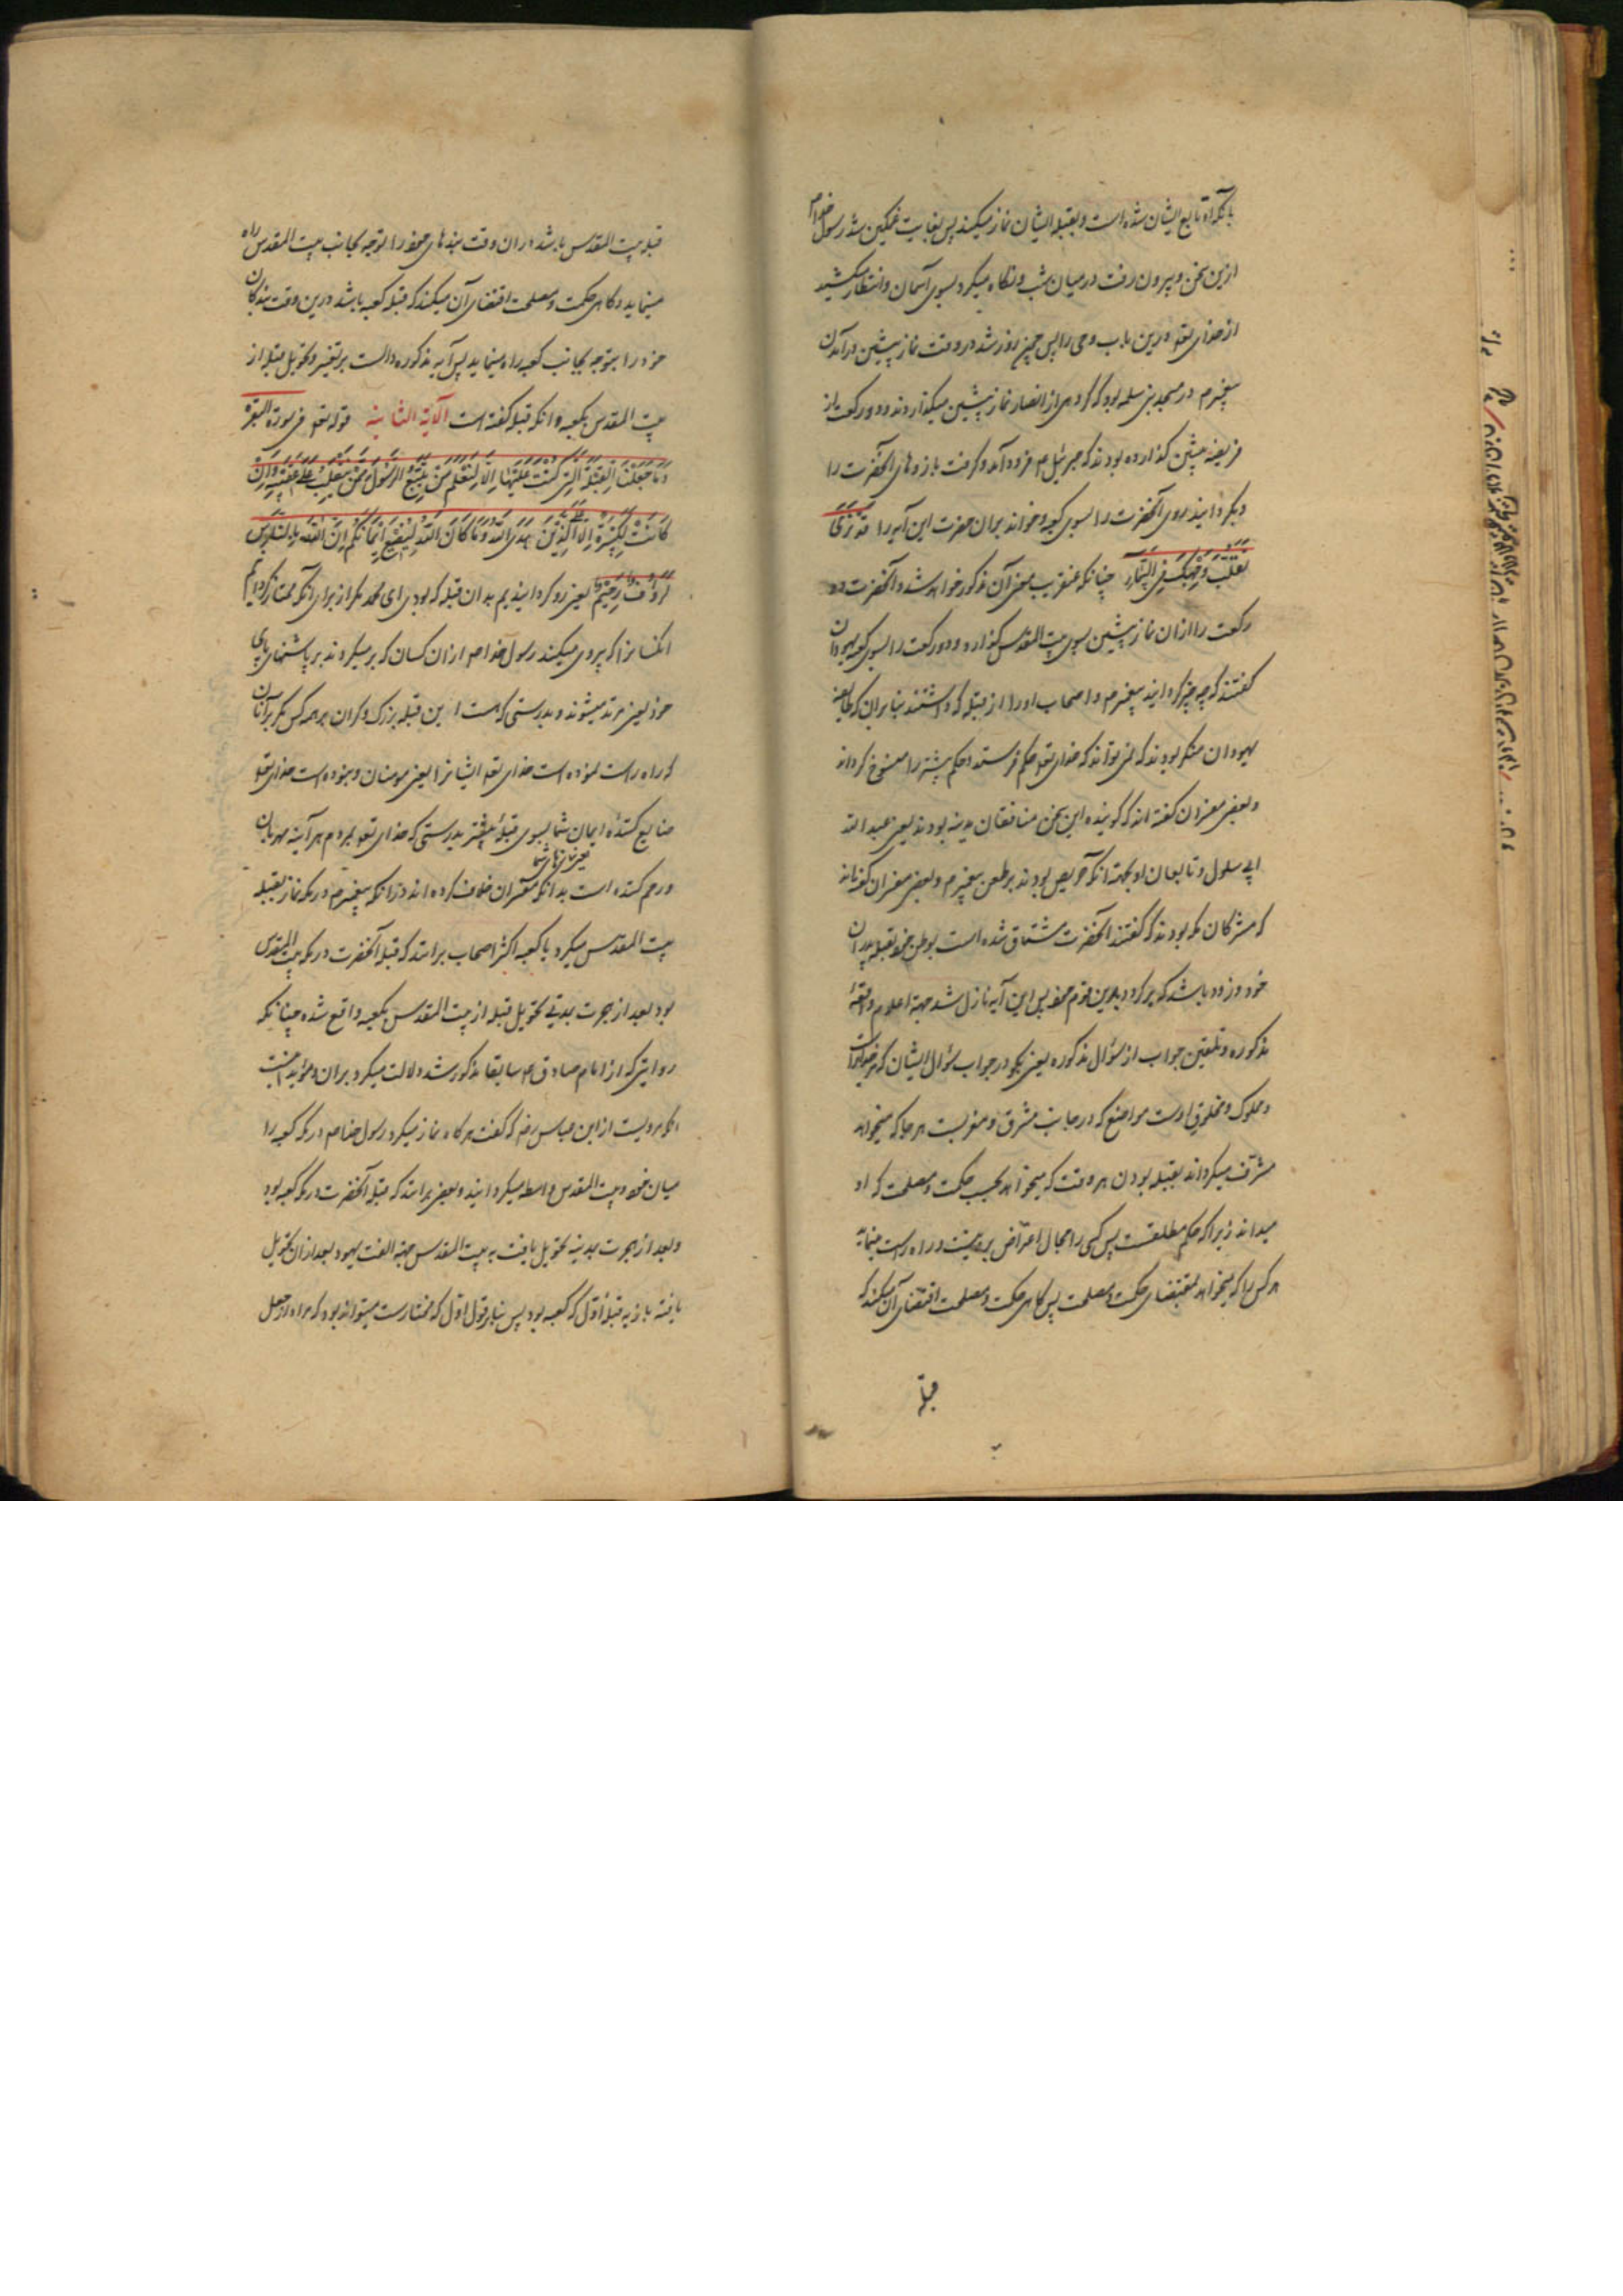 بآنکه او تابع ایشان شده است و بقبله ایشان نماز میکند پس بغایت غمکین شد رسول خدا ص
ازین سخن و بیرون رفت در میان شب و نکاه میکرد بسوی آسمان و انتظار میکشید
از خدای تعو درین باب وحی را پس چون روز شد در وقت نماز پیشین درآمدن
پیغمبر ص در مسجد بنی سلمه بود که کروهی از انصار نماز پیشین میکذاردند و دو رکعت از
فریضه پیشین کذارده بودند که جبرئیل ع فرود آمد و کرفت بازوهای آنحضرت را
و بکردانید روی آنحضرت را بسوی کعبه و خواند بران حضرت این آیه را قَدْ نَرَیٰ
تَقَلُّبَ وَجْهِکَ فِی السَّمَاءِ چنانکه عنقریب معنی آن مذکور خواهد شد و آنحضرت دو
رکعت را ازان نماز پیشین بسوی بیت المقدس کذارد و دو رکعت را بسوی کعبه یهودان
کفتند که چه چیز کردانید پیغمبر ص و اصحاب او را از قبله که داشتند بنابران که طایفه
یهودان منکر بودند که نمی تواند که خدای تعو حکم فرستد و حکم پیشتر را منسوخ کرداند
و بعضی مفسران کفته اند که کوینده این سخن منافقان مدینه بودند یعنی عبد الله
ابی سلول و تابعان او بجهة آنکه حریص بودند بر طعن پیغمبر ص و بعضی مفسران کفته اند
که مشرکان مکه بودند که کفتند آنحضرت مشتاق شده است بوطن خود بقبله پدران
خود و زود باشد که برکردد بدین قوم خود پس این آیه نازل شد جهة اعلام واقعهٔ
مذکوره و تلقین جواب از سؤال مذکوره یعنی بکو در جواب سؤال ایشان که مر خدایراست
و مملوک و مخلوق اوست مواضع که در جانب مشرق و مغربست هر جا که میخواهد
مشرف میکرداند بقبله بودن هر وقت که میخواهد بحسب حکمت و مصلحت که او
میداند زیرا که حکم مطلقست پس کسی را مجال اعتراض برو نیست و راه راست مینماید
هر کس را که میخواهد بمقتضای حکمت و مصلحت پس کاهی حکمت و مصلحت اقتضای آن میکند که
قبله
قبله بیت المقدس باشد دران وقت بندهای خود را بتوجه بجانب بیت المقدس راه
مینماید و کاهی حکمت و مصلحت اقتضای آن میکند که قبله کعبه باشد درین وقت بندکان
خود را بتوجه بجانب کعبه راه مینماید پس آیه مذکوره دالست بر تغییر و تحویل قبله از
بیت المقدس بکعبه و آنکه قبله کفته است الآیة الثانیة قوله تعو فی سورة البقرة
وَمَا جَعَلْنَا الْقِبْلَةَ الَّتِی کُنْتَ عَلَیْهَا اِلَّا لِنَعْلَمَ مَنْ یَتَّبِعُ الرَّسُولَ مِمَّنْ یَنْقَلِبُ عَلَیٰ عَقِبَیْهِ وَاِنْ
کَانَتْ لَکَبِیرَةً اِلَّا عَلَی الَّذِینَ هَدَی اللّٰهُ وَمَا کَانَ اللّٰهُ لِیُضِیعَ اِیمَانَکُمْ اِنَّ اللّٰهَ بِالنَّاسِ
لَرَؤُفٌ رَحِیمٌ یعنی رو نکردانیدیم بدان قبله که بودی ای محمد مکر از برای آنکه ممتاز کردانیم
آنکسانرا که پیروی میکنند رسول خدا ص ازان کسان که برمیکردند بر پاشنهای پای
خود یعنی مرتد میشوند و بدرستی که هست این قبله بزرک و کران بر همه کس مکر بر آنان
که راه راست نموده است خدای تعو ایشانرا یعنی مومنان و نبوده است خدای تعو
ضایع کنندهٔ ایمان شما بسوی قبلهٔ پیشتر بدرستی که خدای تعو بمردم هر آینه مهربان
یعنی نمازهای شما
و رحم کننده است بدانکه مفسران خلاف کرده اند درانکه پیغمبر ص در مکه نماز بقبله
بیت المقدس میکرد یا کعبه اکثر اصحاب برانند که قبله آنحضرت در مکه بیت المقدس
بود بعد از هجرت بمدتی تحویل قبله از بیت المقدس بکعبه واقع شده چنانکه
روایتی که از امام صادق ع سابقا مذکور شد دلالت میکرد بران و مؤید اینست
آنکه مرویست از ابن عباس رض که کفت هرکاه نماز میکرد رسول خدا ص در مکه کعبه را
میان خود و بیت المقدس واسطه میکردانید و بعضی برانند که قبله آنحضرت در مکه کعبه بود
و بعد از هجرت بمدینه تحویل یافت به بیت المقدس جهة الفت یهود بعد ازان تحویل
یافته باز به قبلهٔ اول که کعبه بود پس بنابر قول اول که مختارست میتواند بود که مراد از جعل